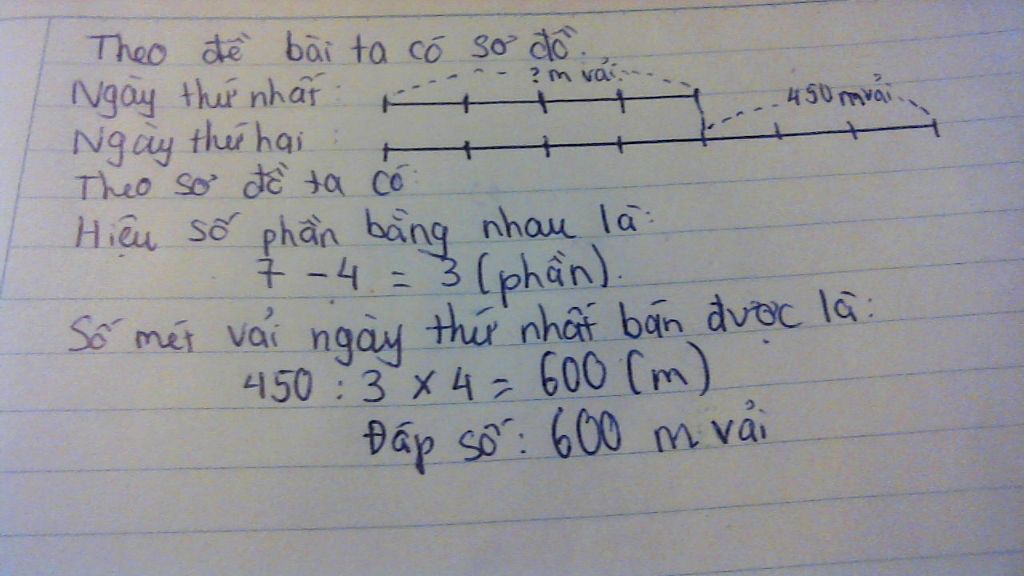 Theo đề bài ta có sơ đồ.
? m vải.
Ngày thứ nhất:
450 m vải
Ngày thứ hai:
Theo sơ đồ ta có:
Hiệu số phần bằng nhau là:
7 - 4 = 3 (phần).
Số mét vải ngày thứ nhất bán được là:
450 : 3 x 4 = 600 (m)
Đáp số: 600 m vải